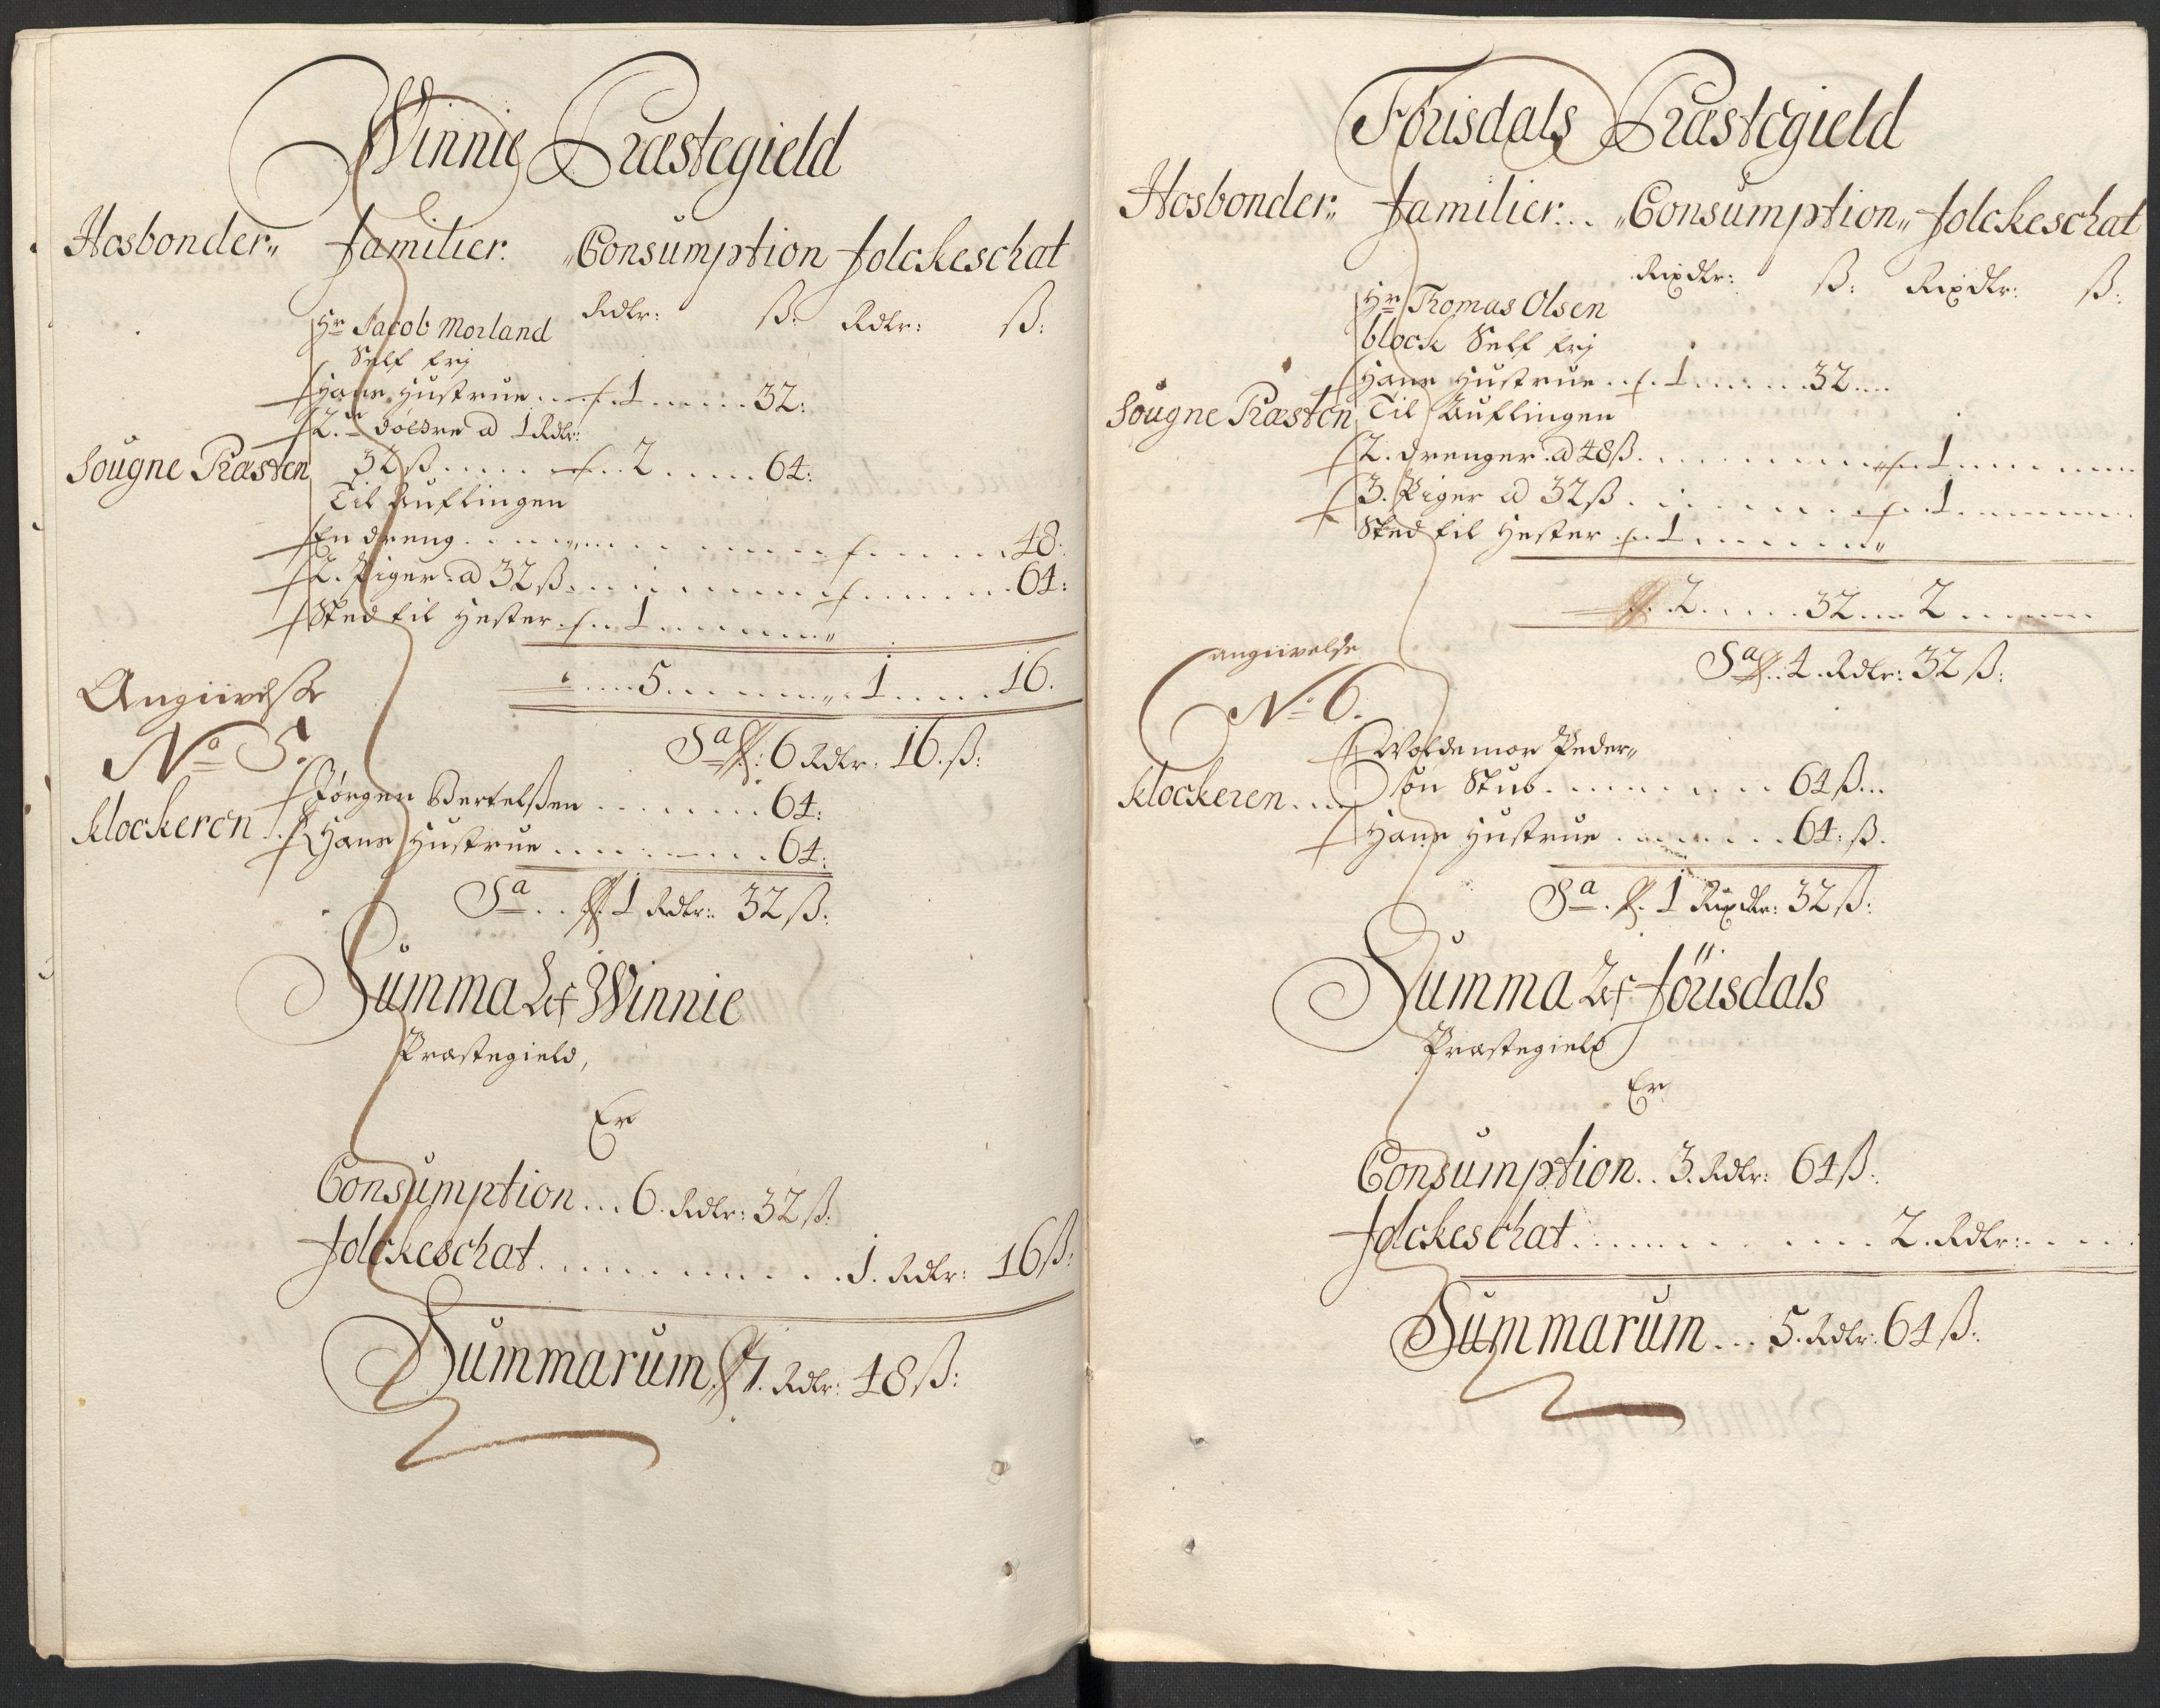 Winnie Præstegield
Hosbonder„ Familier. „Consumption Folckeschat
Rdlr: ß: Rdlr: ß:
Hr Jacob Morland
Self frj
Hans Hustrue . . 1 . . . . . 32:
2de døttre a 1 Rdlr:
Sougne Præsten 32 ß . . . . . 2 . . . . . 64:
Til Auflingen
En dreng . . . . . . . . . . . 48:
2. Piger a 32 ß . . . . . . . . . . . 64:
Sted til Hester . . 1 . . . . . . „
5 . . . . . . „ 1 . . . . . 16.
Sa 6 Rdlr: 16. ß:
Angiivelse
No 5.
Jørgen Bertelßen . . . . . . . 64:
Klockeren
Hans Hustrue . . . . . . . . 64:
Sa . . 1 Rdlr: 32 ß:
Summa Af Winnie
Præstegield,
Er
Consumption . . . 6. Rdlr: 32 ß:
Folckeschat . . . . . . . . . . . . 1. Rdlr: 16 ß:
Summarum 7. Rdlr: 48 ß:
Förisdals Præstegield
Hosbonder„ Familier . . „Consumption„ Folckeschat
Rixdlr: ß: Rixdlr: ß:
Hr Thomas Olsen
block Self frj
Hans Hustrue . . 1 . . . . . . 32 . . .
Sougne Præsten Til Auflingen
2. drenger a 48 ß . . . . . . . . . . 1 . . . . . .
3. Piger a 32 ß . . . . . . . . . . 1 . . . . . .
Sted til Hester . . 1 . . . . . . „
2 . . . . . 32 . . . 2 . . . . . .
Sa 4. Rdlr: 32 ß:
angiivelse
No 6.
Woldemor Peder„
Klockeren . . . sön Stub . . . . . . . . . 64 ß . . .
Hans Hustrue . . . . . . . 64: ß.
Sa . . 1 Rixdlr: 32 ß:
Summa Af Förisdals
Præstegield
Er
Consumption . . 3. Rdlr: 64 ß:
Folckeschat . . . . . . . . . . . 2. Rdlr: . . . .
Summarum . . . 5. Rdlr: 64 ß: